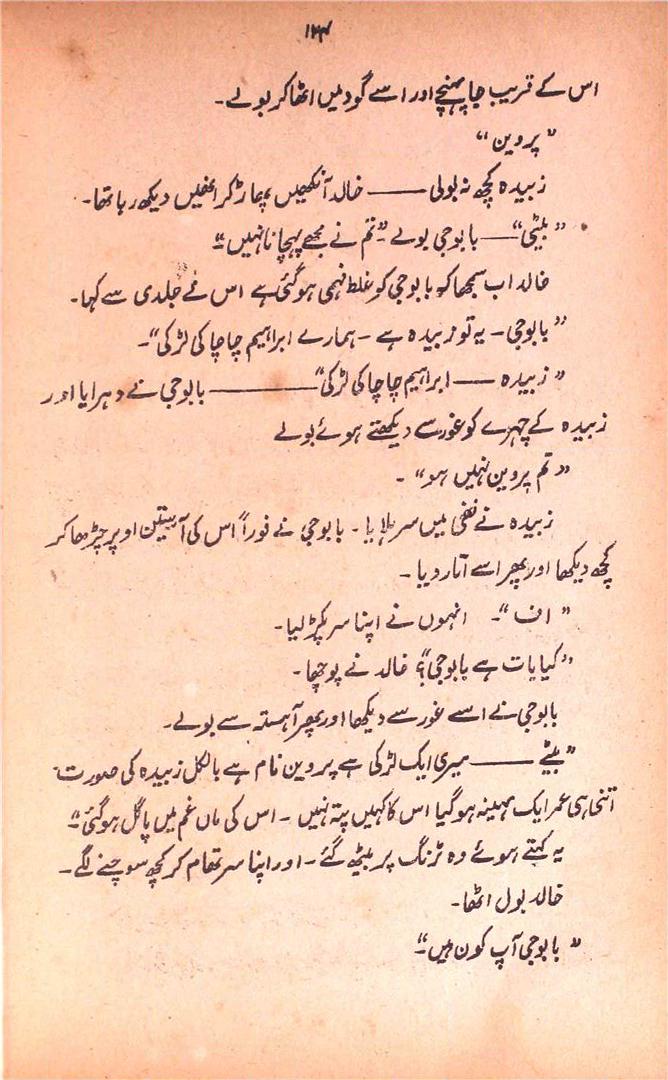 ۱۲۳
اس کے قریب جا پہنچے اور اسے گود میں اٹھا کر بولے۔
"پروین"
زبیدہ کچھ نہ بولی —— خالد آنکھیں پھاڑ کر انھیں دیکھ رہا تھا۔
"بیٹی" —— بابوجی بولے "تم نے مجھے پہچانا نہیں"
خالد اب سمجھا کہ بابوجی کو غلط فہمی ہوگئی ہے اس نے جلدی سے کہا۔
"بابوجی۔ یہ تو زبیدہ ہے۔ ہمارے ابراہیم چاچا کی لڑکی"۔
"زبیدہ —— ابراہیم چاچا کی لڑکی" —— بابوجی نے دہرایا اور
زبیدہ کے چہرے کو غور سے دیکھتے ہوئے بولے
"تم پروین نہیں ہو"۔
زبیدہ نے نفی میں سر ہلایا۔ بابوجی نے فوراً اس کی آستین اوپر چڑھا کر
کچھ دیکھا اور پھر اسے اتار دیا۔
"اف"۔ انہوں نے اپنا سر پکڑ لیا۔
"کیا بات ہے بابوجی؟" خالد نے پوچھا۔
بابوجی نے اسے غور سے دیکھا اور پھر آہستہ سے بولے۔
"بیٹے —— میری ایک لڑکی ہے پروین نام ہے بالکل زبیدہ کی صورت
اتنی ہی عمر ایک مہینہ ہوگیا اس کا کہیں پتہ نہیں۔ اس کی ماں غم میں پاگل ہوگئی"۔
یہ کہتے ہوئے وہ ٹرنک پر بیٹھ گئے۔ اور اپنا سر تھام کر کچھ سوچنے لگے۔
خالد بول اٹھا۔
"بابوجی آپ کون ہیں"۔